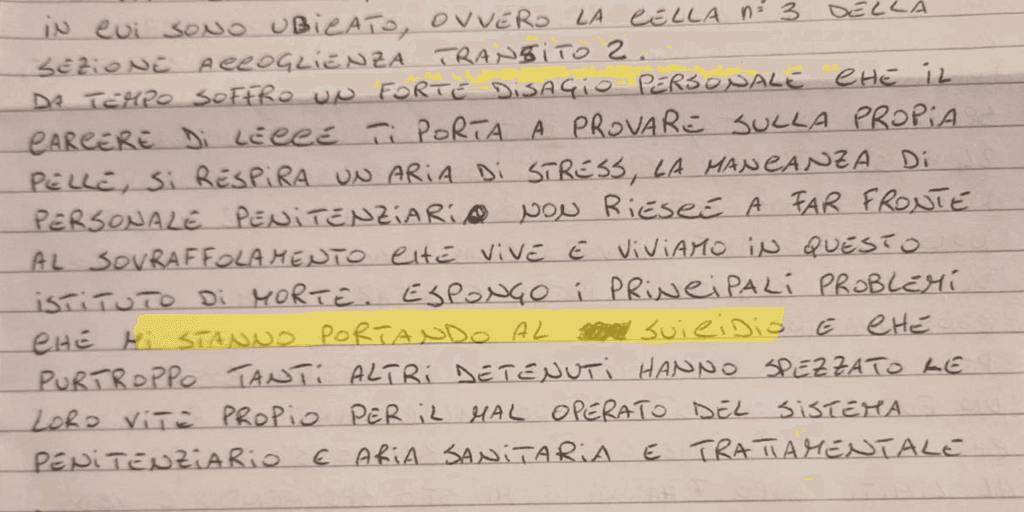 IN CUI SONO UBICATO, OVVERO LA CELLA n° 3 DELLA
SEZIONE ACCOGLIENZA TRANSITO 2.
DA TEMPO SOFFRO UN FORTE DISAGIO PERSONALE CHE IL
CARCERE DI LECCE TI PORTA A PROVARE SULLA PROPIA
PELLE, SI RESPIRA UN ARIA DI STRESS, LA MANCANZA DI
PERSONALE PENITENZIARI NON RIESCE A FAR FRONTE
AL SOVRAFFOLAMENTO CHE VIVE E VIVIAMO IN QUESTO
ISTITUTO DI MORTE. ESPONGO I PRINCIPALI PROBLEMI
CHE MI STANNO PORTANDO AL SUICIDIO E CHE
PURTROPPO TANTI ALTRI DETENUTI HANNO SPEZZATO LE
LORO VITE PROPIO PER IL MAL OPERATO DEL SISTEMA
PENITENZIARIO E ARIA SANITARIA E TRATTAMENTALE